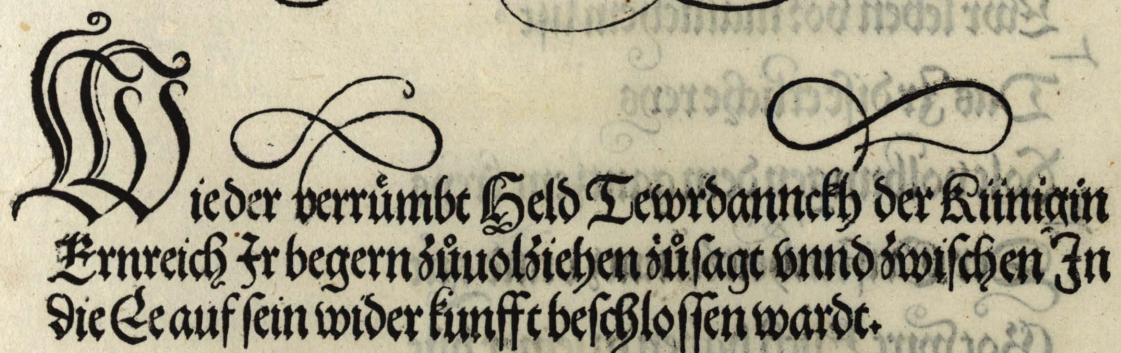 Wie der verrůmbt Held Tewrdannckh der Künigin
Ernreich Ir begern zůuolziehen zůsagt vnnd zwischen In
die Ee auf sein wider kunfft beschlossen wardt.